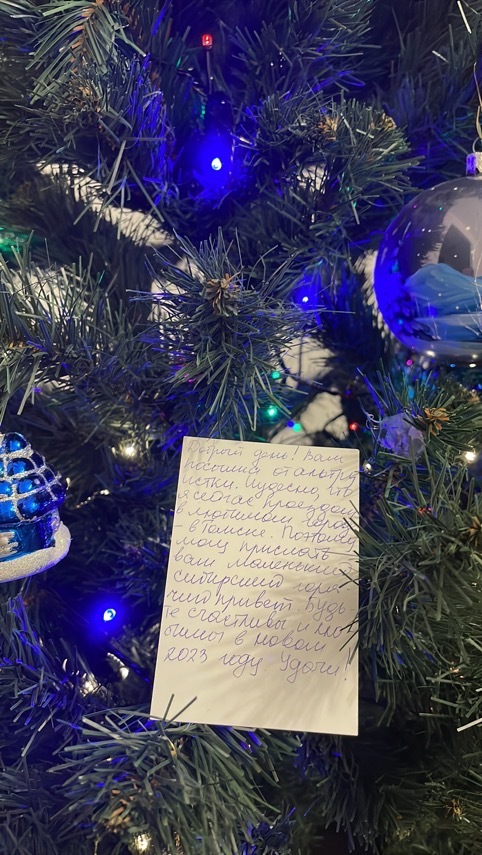 Добрый день! Вам
посылка от альтру
истки. Чудесно, что
я сейчас проездом
в любимом горо
- в Томске. Поэтому
могу прислать
вам маленький
сибирский горя
чий привет. Будь-
те счастливы и лю
бимы в новом
2023 году. Удачи!